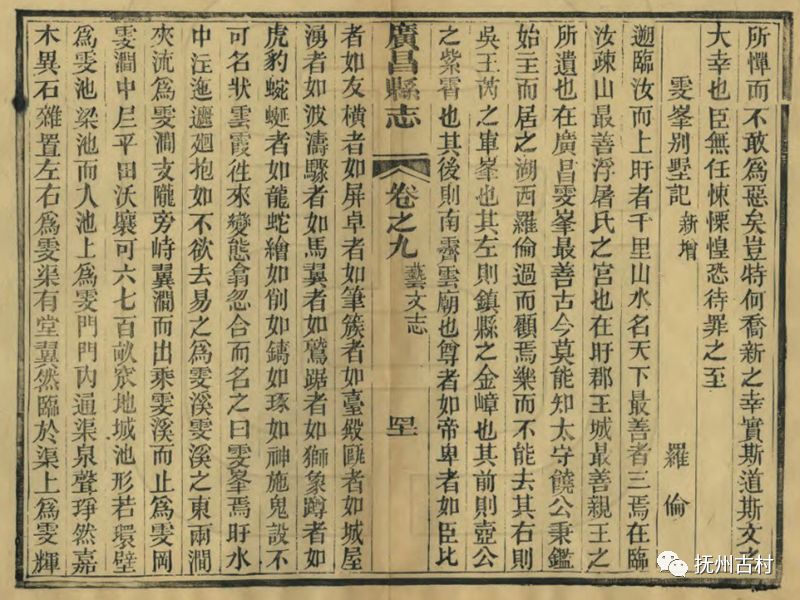 所憚而不敢為惡矣豈特何喬新之幸實斯道斯文之
大幸也臣無任悚慄惶恐待罪之至
雯峯別墅記 新增 羅倫
遡臨汝而上盱者千里山水名天下最善者三焉在臨
汝疎山最善浮屠氏之宮也在盱郡王城最善親王之
所遺也在廣昌雯峯最善古今莫能知太守饒公秉鑑
始主而居之湖西羅倫過而顧焉樂而不能去其右則
吳王芮之軍峯也其左則鎮縣之金嶂也其前則壺公
之紫霄也其後則南霽雲廟也尊者如帝卑者如臣比
廣昌縣志 卷之九 藝文志
者如友橫者如屏卓者如筆簇者如臺殿甌者如城屋
湧者如波濤驟者如馬翼者如鷲踞者如獅象蹲者如
虎豹蜿蜒者如龍蛇繪如削如鑄如琢如神施鬼設不
可名狀雲霞徃來變態翕忽合而名之曰雯峯焉盱水
中注迤邐廻抱如不欲去易之為雯溪雯溪之東兩澗
夾流為雯澗支隴旁峙翼澗而出乘雯溪而止為雯岡
雯澗中巨平田沃壤可六七百畝窾地城池形若環璧
為雯池梁池而入池上為雯門門內通渠泉聲琤然嘉
木異石雜置左右為雯渠有堂翼然臨於渠上為雯輝
抚州古村